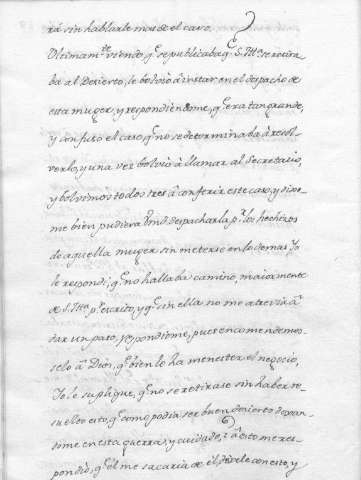 rá sin hablarle mas de el caso.
Ultimamte. viendo, qe. se publicaba qe. S. Illa. se retira
ba al Desierto, le bolvio â instar, en el despacho de
esta muger, y respondiendome, qe. era tan grande,
y confuso el caso, qe. no se determinaba â resol-
verlo, y una vez bolvio â llamar al Secretario,
y bolvimos todos tres â conferir este caso, y dixo-
me bien pudiera Vmd despacharla, pr. los hechizos
de aquella muger sin meterse en lo demas. Yo
le respondi, qe. no hallaba camino, maiormente
de S. Illa. pr. escrito, y qe. sin ella no me atreviria â
dar un paso, respondiome, pues encomendemos-
selo â Dios, qe. bien lo ha menester el negocio,
Yo le suplique, qe. no se retirase sin haber re-
suelto esto, qe. como podia ser buen desierto dexan-
dome en esta guerra, y cuidado, â esto me res-
pondió, qe. él me sacaria de él, con esto, y